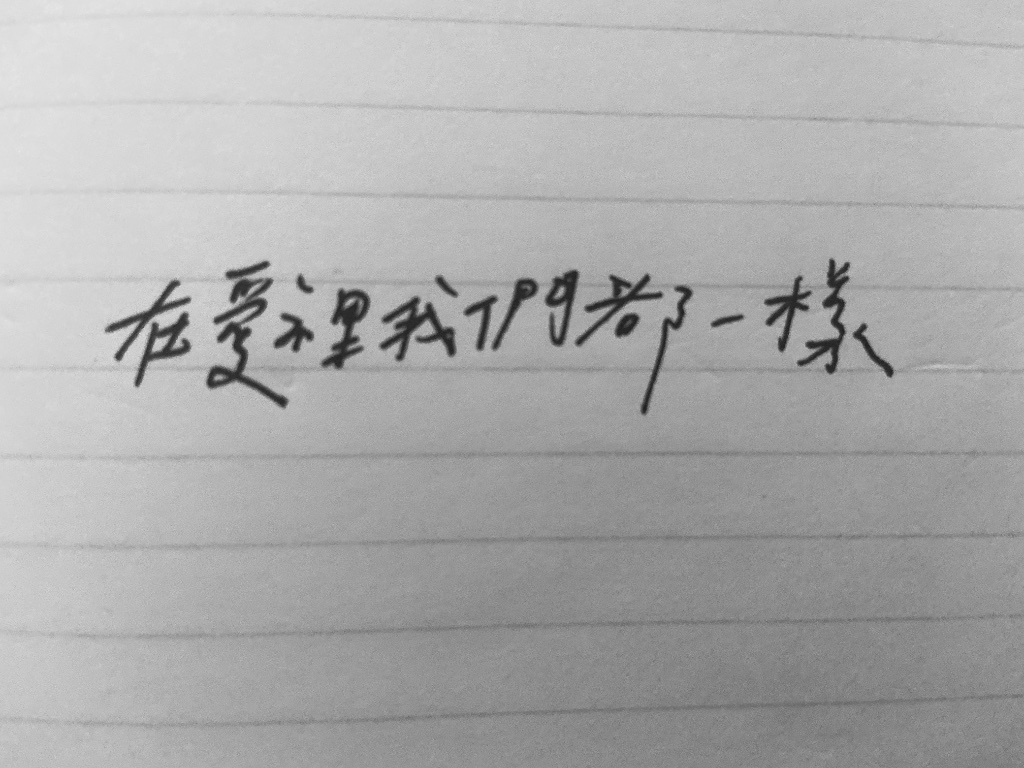 在愛裡我們都一樣